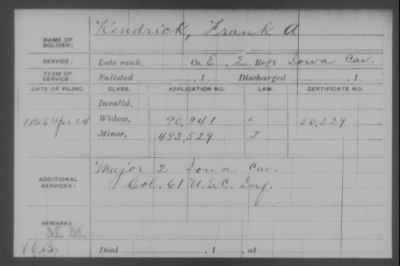 NAME OF SOLDIER: Kendrick, Frank A
SERVICE: Late rank, Co. E, 2 Reg't Iowa Cav.
TERM OF SERVICE: Enlisted , 1 Discharged , 1
DATE OF FILING. CLASS. APPLICATION NO. LAW. CERTIFICATE NO.
Invalid,
1865 Apr 24 Widow, 90,941 50,229
Minor, 493,529
ADDITIONAL SERVICES: Major 2 Iowa Cav.
Col. 61 U.S.C. Inf.
REMARKS:
Died , 1 , at